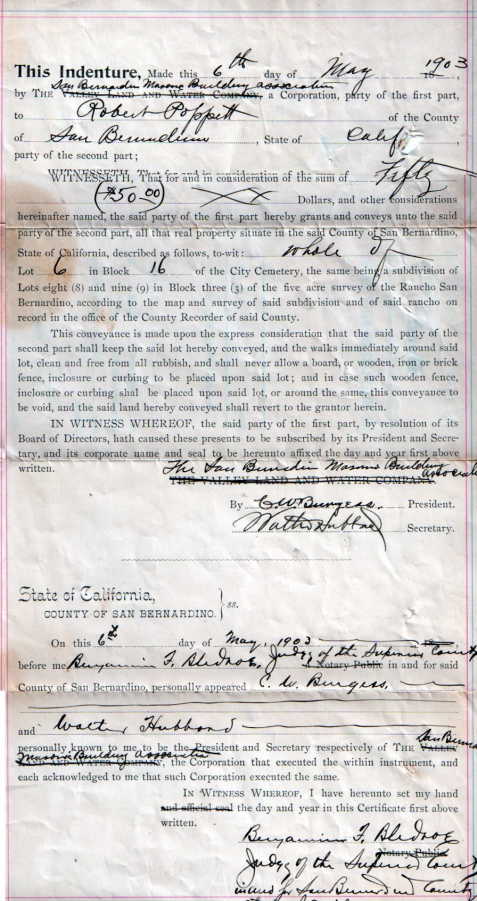 This Indenture, Made this 6th day of May 1903,
San Bernardino Masonic Building association
by THE VALLEY LAND AND WATER COMPANY, a Corporation, party of the first part,
to Robert Poppett of the County
of San Bernardino, State of Calif,
party of the second part;
WITNESSETH, That for and in consideration of the sum of Fifty
($50.00) Dollars, and other considerations
hereinafter named, the said party of the first part hereby grants and conveys unto the said
party of the second part, all that real property situate in the said County of San Bernardino,
State of California, described as follows, to-wit: Whole of
Lot 6 in Block 16 of the City Cemetery, the same being a subdivision of
Lots eight (8) and nine (9) in Block three (3) of the five acre survey of the Rancho San
Bernardino, according to the map and survey of said subdivision and of said rancho on
record in the office of the County Recorder of said County.
This conveyance is made upon the express consideration that the said party of the
second part shall keep the said lot hereby conveyed, and the walks immediately around said
lot, clean and free from all rubbish, and shall never allow a board, or wooden, iron or brick
fence, inclosure or curbing to be placed upon said lot; and in case such wooden fence,
inclosure or curbing shal be placed upon said lot, or around the same, this conveyance to
be void, and the said land hereby conveyed shall revert to the grantor herein.
IN WITNESS WHEREOF, the said party of the first part, by resolution of its
Board of Directors, hath caused these presents to be subscribed by its President and Secre-
tary, and its corporate name and seal to be hereunto affixed the day and year first above
written. The San Bernardin Masonic Building associat
THE VALLEY LAND AND WATER COMPANY
By E. W. Burgess. President.
Walter Hubbard Secretary.
State of California,
COUNTY OF SAN BERNARDINO. } ss.
On this 6th day of May, 1903
before me Benjamin F. Bledsoe, Judge of the Superior County
a Notary Public in and for said
County of San Bernardino, personally appeared E. W. Burgess,
and Walter Hubbard
personally known to me to be the President and Secretary respectively of THE VALLEY San Bernar
Masonic Building association
LAND AND WATER COMPANY, the Corporation that executed the within instrument, and
each acknowledged to me that such Corporation executed the same.
IN WITNESS WHEREOF, I have hereunto set my hand
and official seal the day and year in this Certificate first above
written.
Benjamin F. Bledsoe
Notary Public
Judge of the Superior Court
in and for San Bernardino County